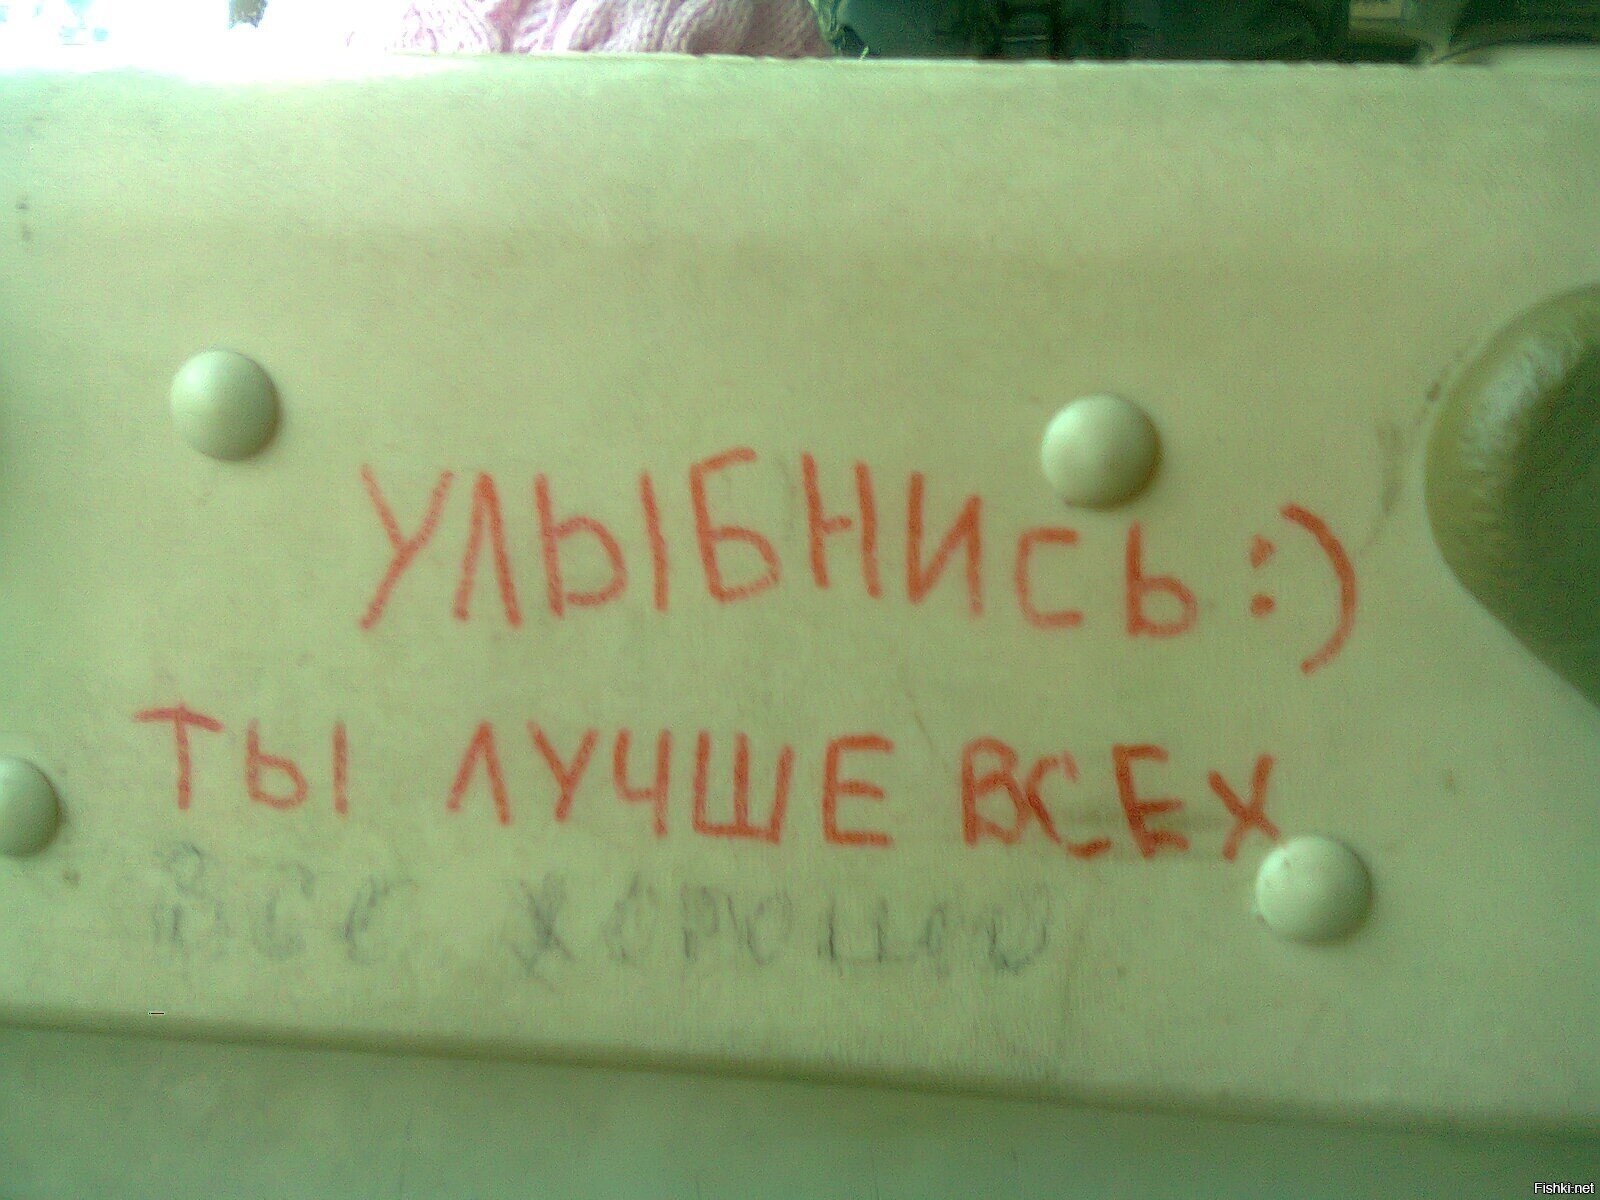 УЛЫБНИСЬ :)
ТЫ ЛУЧШЕ ВСЕХ
ВСЕ ХОРОШО
Fishki.net